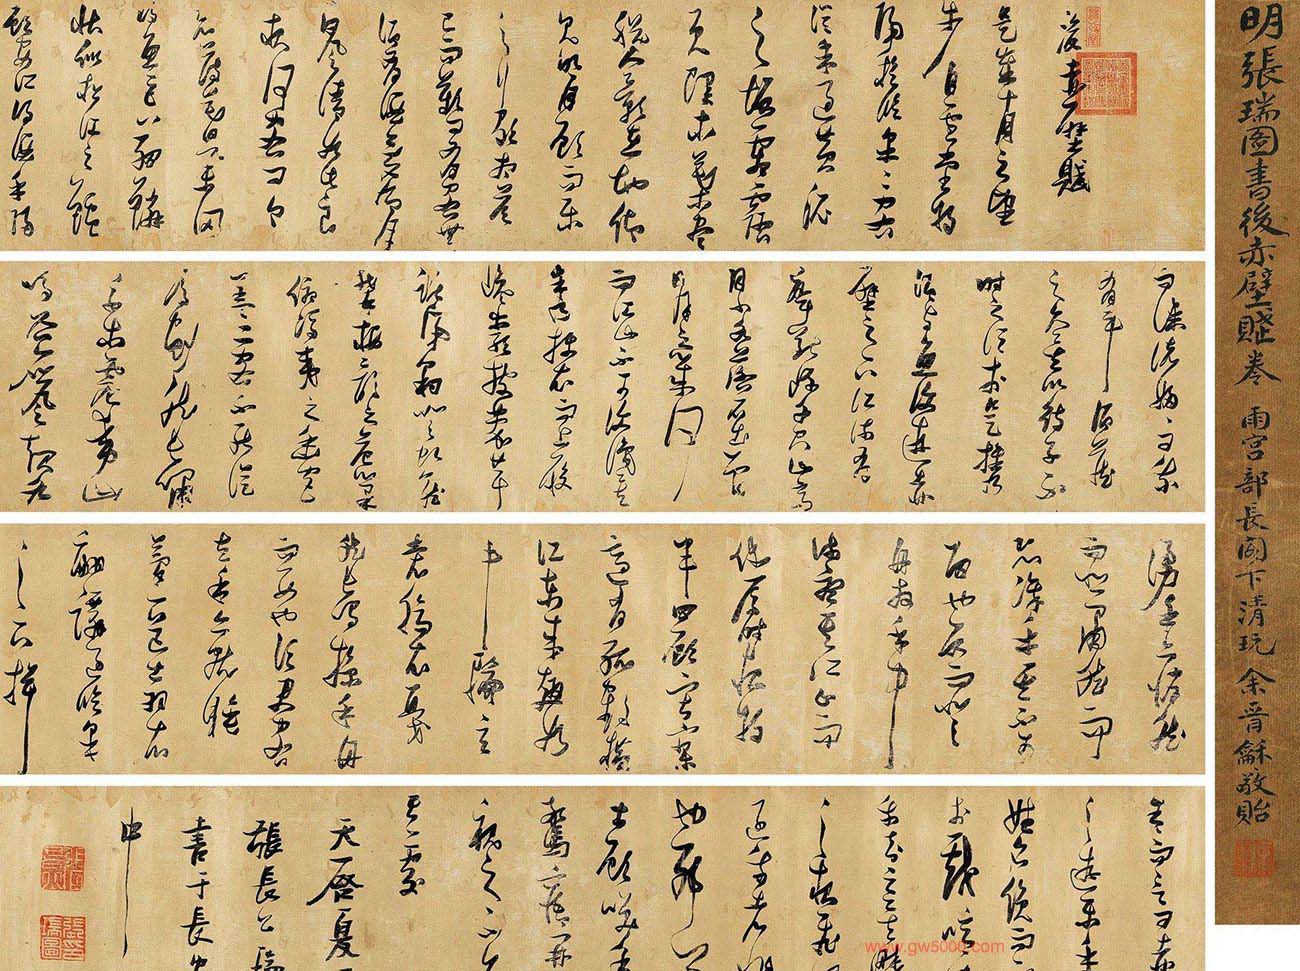 明張瑞圖書後赤壁賦卷 雨宮部長閣下清玩 余晉龢敬貽
後赤壁賦
是歲十月之望
步自雪堂將
歸於臨皋二客
從予過黃泥
之坂霜露
既降木葉盡
脫人影在地仰
見明月顧而樂
之行歌相答
已而歎曰有客無
酒有酒無肴月
白風清如此良
夜何客曰今
者薄暮舉網
得魚巨口細鱗
狀似松江之鱸
顧安所得酒乎歸
而謀諸婦婦曰我
有斗酒藏
之久矣以待子不
時之須於是攜
酒與魚復遊赤
壁之下江流有
聲斷岸千尺山高
月小水落石出曾
日月之幾何
而江山不可復識矣
予乃攝衣而上履
巉岩披蒙茸
踞虎豹登虬龍
攀棲鶻之危巢
俯馮夷之幽宮
蓋二客不能從
焉劃然長嘯
草木震動山
鳴谷應風起水
湧予亦悄然
而悲肅然而
恐凜乎其不可
留也反而登
舟放乎中
流聽其所止而
休焉時夜將
半四顧寂寥
適有孤鶴橫
江東來翅如
車輪玄
裳縞衣戛
然長鳴掠予舟
而西也須臾客
去予亦就睡
夢一道士羽衣
翩躚過臨皋
之下揖
予而言曰赤
壁之遊樂乎
姓名俛而不
嗚呼噫
我知之矣疇
之夜飛
過我者
也耶道
士顧笑予
驚寤開
戶視之不見
其處
天啓夏
張長公瑞
書于長安
中
www.gw5000.com